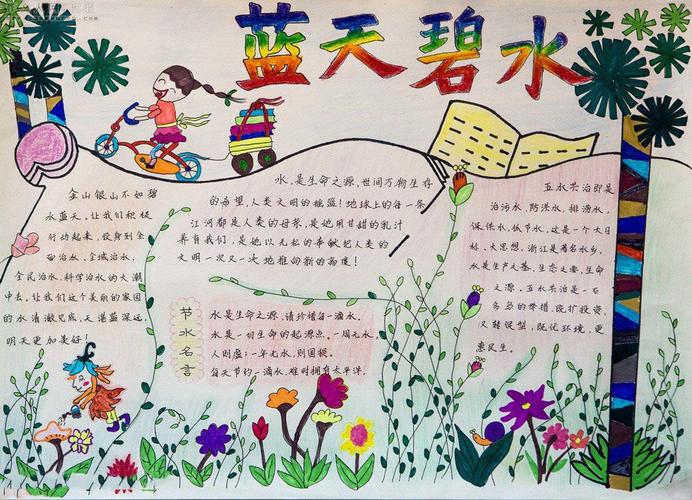 蓝天碧水
金山银山不如碧
水蓝天,让我们积极
行动起来,投身到全
面治水、全域治水、
全民治水、科学治水的大潮
中去,让我们这个美丽的家园
的水清澈见底,天湛蓝深远
明天更加美好!
水,是生命之源,世间万物生存
的希望,人类文明的摇篮!地球上的每一条
江河都是人类的母亲,是她用甘甜的乳汁
养育我们,是她以无私的奉献把人类的
文明一次又一次地推向新的高度!
节水名言
水是生命之源,请珍惜每一滴水。
水是一切生命的起源点。一周无水,
人则虚;一年无水,则国衰。
每天节约一滴水,难时拥有太平洋。
五水共治即是
治污水,防洪水,排涝水,
保供水,抓节水,这是一个大目
标、大思想,浙江是著名水乡,
水是生产之基,生态之要,生命
之源,五水共治是一石
多鸟的举措,既扩投资,
又转促型,既优环境,更
惠民生。